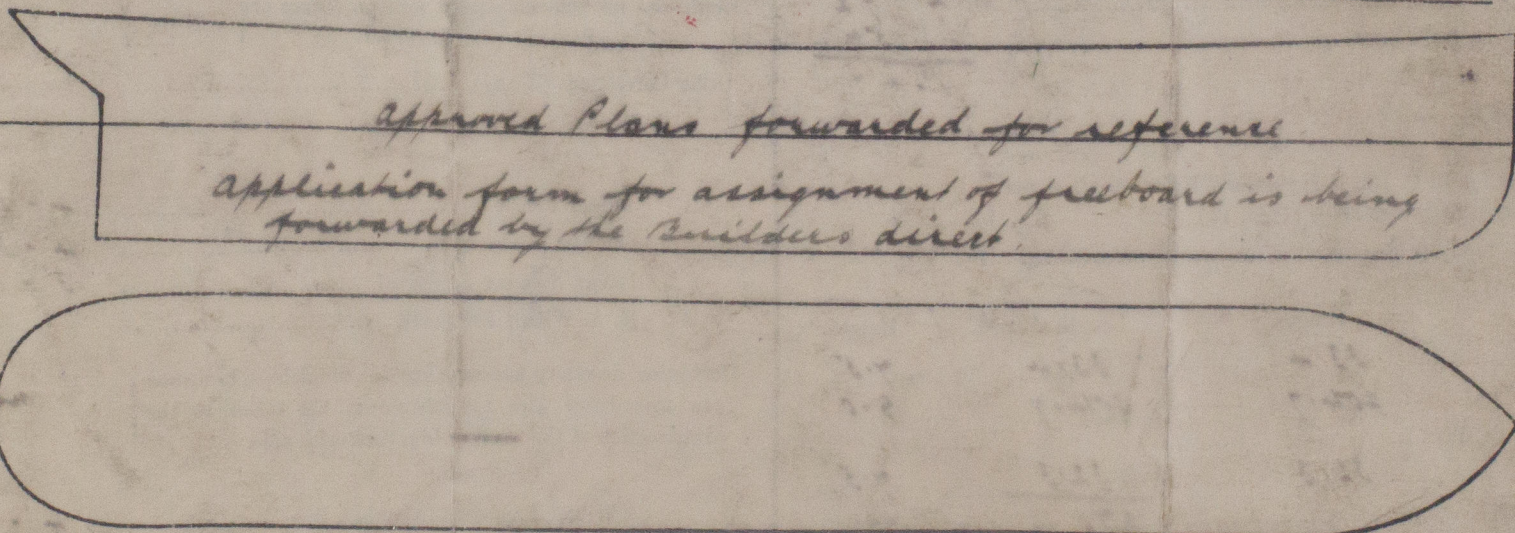 approved Plans forwarded for reference
application form for assignment of freeboard is being
forwarded by the Builders direct.